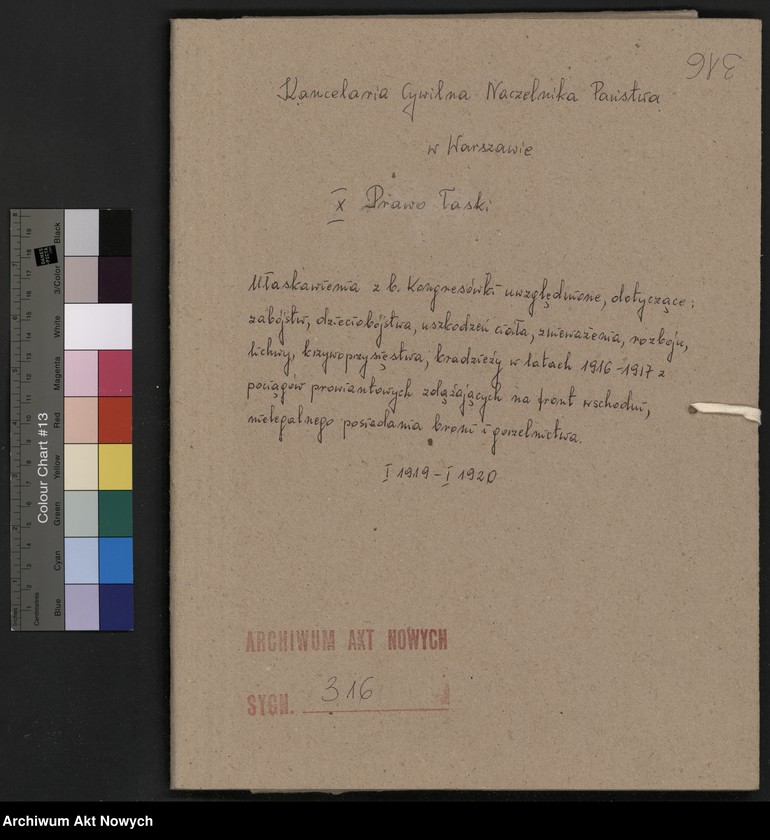 316
Kancelaria Cywilna Naczelnika Państwa
w Warszawie
X Prawo Łaski
Ułaskawienia z b. Kongresówki uwzględnione, dotyczące:
zabójstw, dzieciobójstwa, uszkodzeń ciała, znieważenia, rozboju,
lichwy, krzywoprzysięstwa, kradzieży w latach 1916-1917 z
pociągów prowiantowych zdążających na front wschodni,
nielegalnego posiadania broni i gorzelnictwa.
I 1919 - I 1920
ARCHIWUM AKT NOWYCH
SYGN. 316
Colour Chart #13
Black
3/Color
White
Magenta
Red
Yellow
Green
Cyan
Blue
Centimetres
Inches
Archiwum Akt Nowych